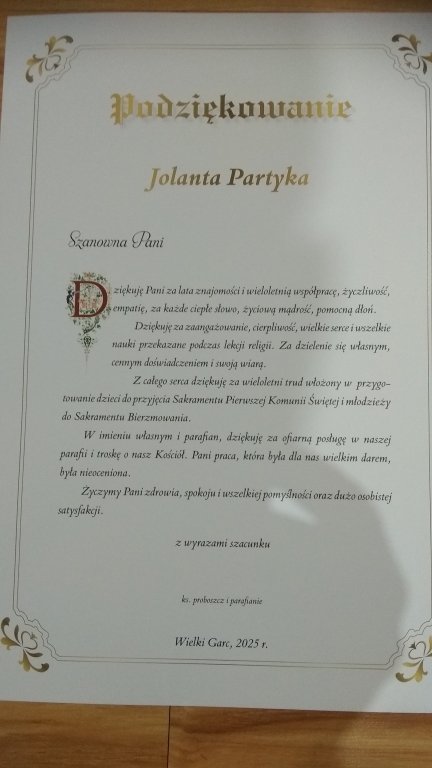 Podziękowanie
Jolanta Partyka
Szanowna Pani
Dziękuję Pani za lata znajomości i wieloletnią współpracę, życzliwość,
empatię, za każde ciepłe słowo, życiową mądrość, pomocną dłoń.
Dziękuję za zaangażowanie, cierpliwość, wielkie serce i wszelkie
nauki przekazane podczas lekcji religii. Za dzielenie się własnym,
cennym doświadczeniem i swoją wiarą.
Z całego serca dziękuję za wieloletni trud włożony w przygo-
towanie dzieci do przyjęcia Sakramentu Pierwszej Komunii Świętej i młodzieży
do Sakramentu Bierzmowania.
W imieniu własnym i parafian, dziękuję za ofiarną posługę w naszej
parafii i troskę o nasz Kościół. Pani praca, która była dla nas wielkim darem,
była nieoceniona.
Życzymy Pani zdrowia, spokoju i wszelkiej pomyślności oraz dużo osobistej
satysfakcji.
z wyrazami szacunku
ks. proboszcz i parafianie
Wielki Garc, 2025 r.